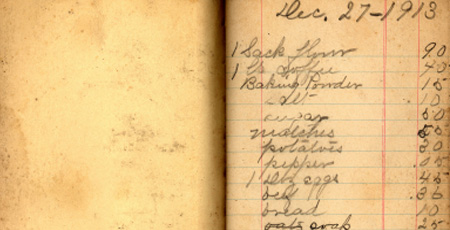 Dec. 27-1913
1 Sack flour 90
1 lb Coffee 40
Baking Powder 15
salt 10
sugar 50
matches
potatoes 50
pepper .05
1 Doz eggs 45
beef .30
bread 10
25